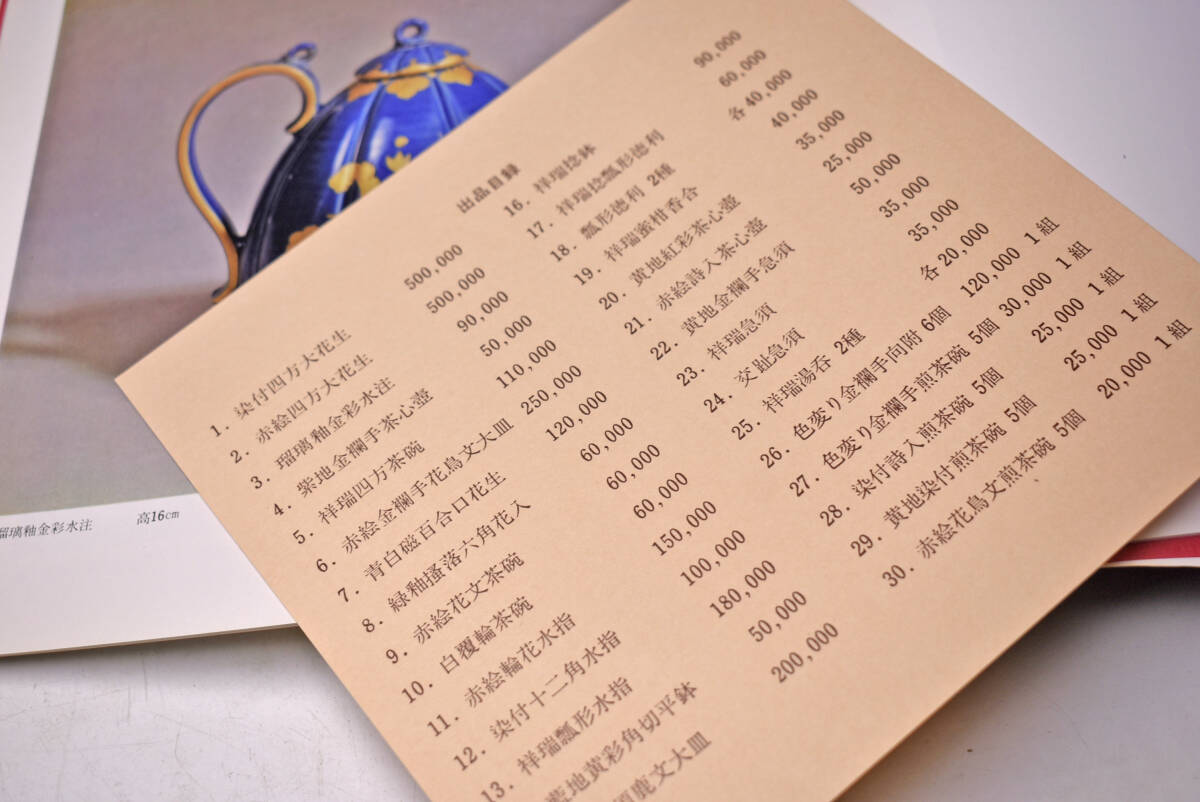 出品目録
1. 染付四方大花生 500,000
2. 赤絵四方大花生 500,000
3. 瑠璃釉金彩水注 90,000
4. 紫地金襴手茶心壺 50,000
5. 祥瑞四方茶碗 110,000
6. 赤絵金襴手花鳥文大皿 250,000
7. 青白磁百合口花生 120,000
8. 緑釉掻落六角花入 60,000
9. 赤絵花文茶碗 60,000
10. 白覆輪茶碗 60,000
11. 赤絵輪花水指 150,000
12. 染付十二角水指 100,000
13. 祥瑞瓢形水指 180,000
地黄彩角切平鉢 50,000
鹿文大皿 200,000
16. 祥瑞捻鉢 90,000
17. 祥瑞捻瓢形徳利 60,000
18. 瓢形徳利 2種 各40,000
19. 祥瑞蜜柑香合 40,000
20. 黄地紅彩茶心壺 35,000
21. 赤絵詩入茶心壺 25,000
22. 黄地金襴手急須 50,000
23. 祥瑞急須 35,000
24. 交趾急須 35,000
25. 祥瑞湯呑 2種 各20,000
26. 色変り金襴手向附 6個 120,000 1組
27. 色変り金襴手煎茶碗 5個 30,000 1組
28. 染付詩入煎茶碗 5個 25,000 1組
29. 黄地染付煎茶碗 5個 25,000 1組
30. 赤絵花鳥文煎茶碗 5個 20,000 1組
瑠璃釉金彩水注 高16cm